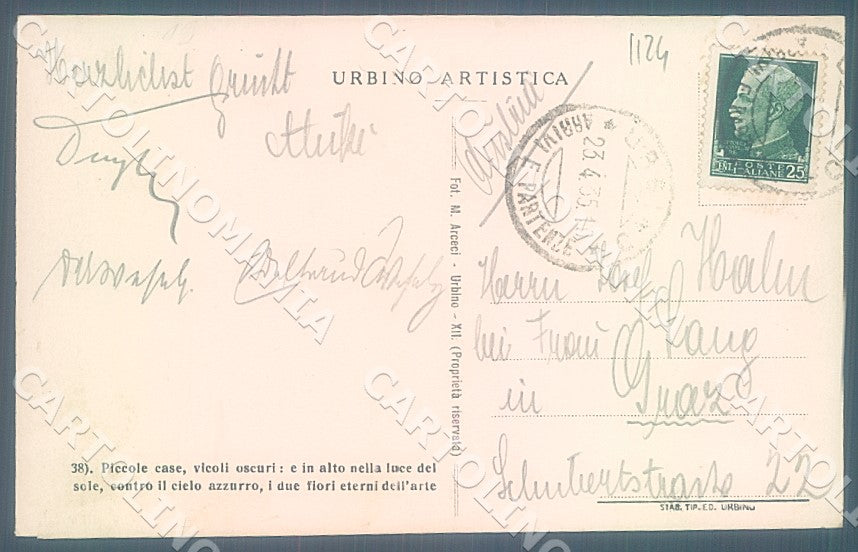 1124
URBINO ARTISTICA
Herzlichst grüßt
Austria
URBINO
ARRIVI E PARTENZE
23.4.35
POSTE ITALIANE
CENT. 25
Herrn Hahn
bei Frau Lang
in Graz
Schubertstraße 22
Fot. M. Arceci - Urbino - XII. (Proprietà riservata)
38). Piccole case, vicoli oscuri: e in alto nella luce del
sole, contro il cielo azzurro, i due fiori eterni dell'arte
STAB. TIP. ED. URBINO
CARTOLINOMANIA